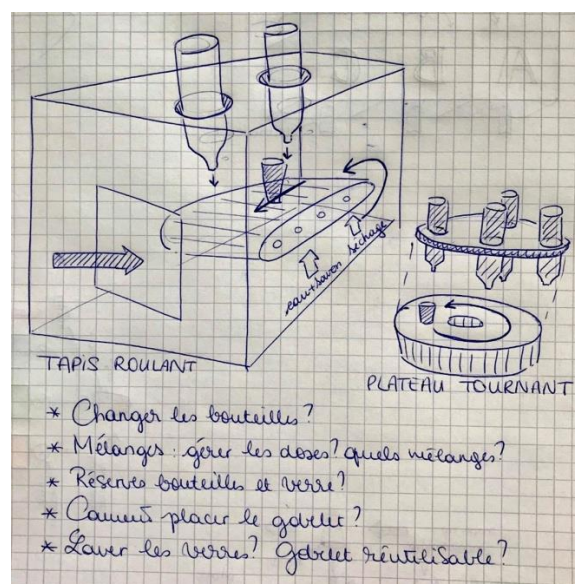 eau+savon séchage
TAPIS ROULANT
PLATEAU TOURNANT
* Changer les bouteilles?
* Mélanges: gérer les doses? quels mélanges?
* Réserves bouteilles et verre?
* Comment placer le gobelet?
* Laver les verres? Gobelet réutilisable?